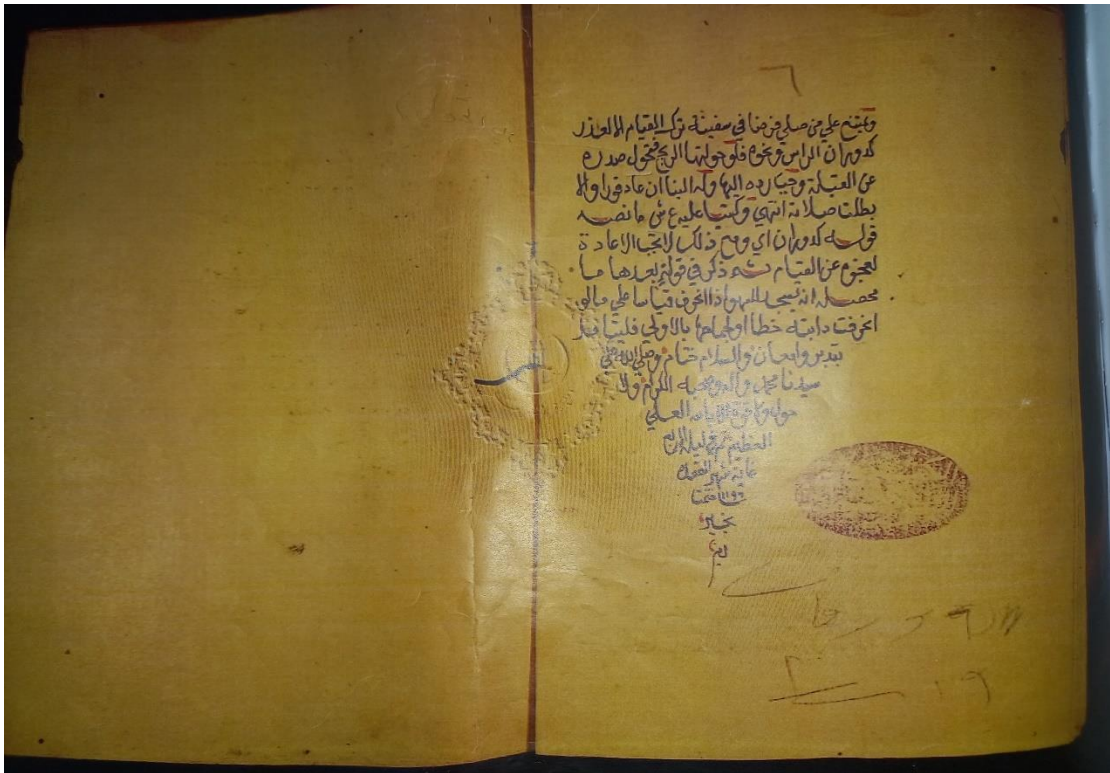 ٦
ويمتنع علي من صلي فرضا في سفينة ترك القيام الا لعذر
كدوران الراس ونحوه فلو حولتها الريح فتحول صدره
عن القبلة وجب رده اليها وله البنا ان عاد فورا والا
بطلت صلاته انتهي وكتب عليه ع ش ما نصه
قوله كدوران اي ومع ذلك لا تجب الاعادة
لعجزه عن القيام ثم ذكر في قولة بعدها ما
محصله انه يسجد للسهو اذا انحرف قياسا علي مالو
انحرفت دابته خطا او لجماحها بالاولي فليتامل
بتدبر وامعان والسلام ختام وصلي الله علي
سيدنا محمد واله وصحبه الكرام ولا
حول ولا قوة الا بالله العلي
العظيم تم في ليلة الاربع
غاية شهر القعدة
١١٩٦ ختمت
بخير
تم